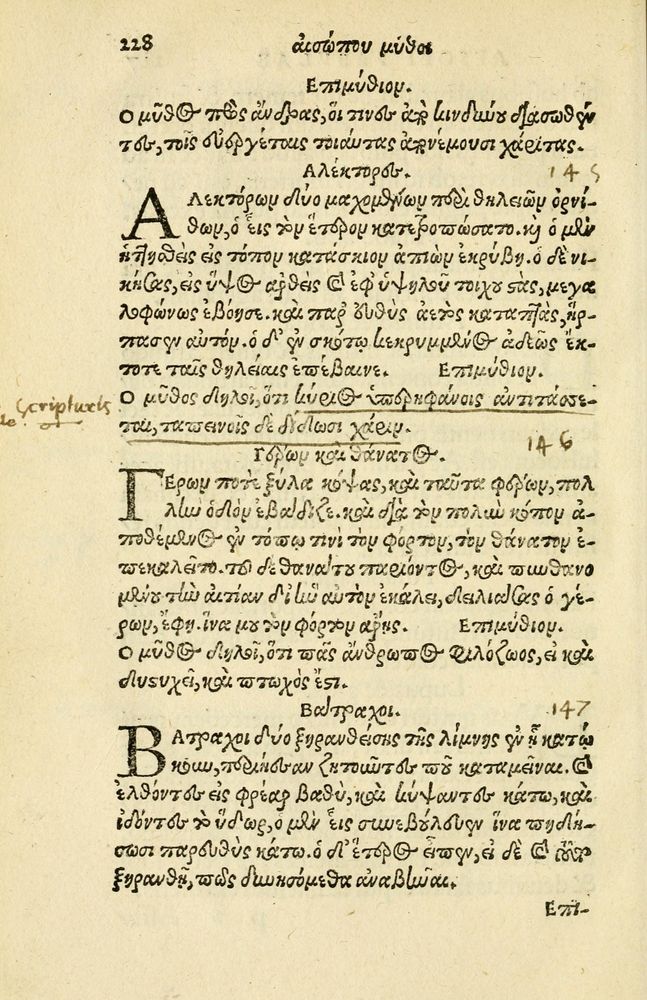 228 αἰσώπου μῦθοι
Επιμύθιον.
Ο μῦθος πρὸς ἄνδρας, οἵ τινες ἀπὸ κινδύνου διασωθέν
τες, τοῖς εὐεργέταις τοιαύτας ἀπονέμουσι χάριτας.
Αλέκτορες. 145
Αλεκτόρων δύο μαχομένων περὶ θηλειῶν ὀρνί-
θων, ὁ εἷς τὸν ἕτερον κατετροπώσατο. καὶ ὁ μὲν
ἡττηθεὶς εἰς τόπον κατάσκιον ἀπιὼν ἐκρύβη. ὁ δὲ νι-
κήσας, εἰς ὕψος ἀρθεὶς καὶ ἐφ' ὑψηλοῦ τοίχου στὰς, μεγα
λοφώνως ἐβόησε. καὶ παρευθὺς ἀετὸς καταπτὰς, ἥρ-
πασεν αὐτόν. ὁ δ' ἐν σκότῳ κεκρυμμένος ἀδεῶς ἔκ-
τοτε ταῖς θηλείαις ἐπέβαινε. Επιμύθιον.
Ο μῦθος δηλοῖ, ὅτι κύριος ὑπερηφάνοις ἀντιτάσσε-
ται, ταπεινοῖς δὲ δίδωσι χάριν.
Scripturis
146
Γέρων καὶ θάνατος.
Γέρων ποτὲ ξύλα κόψας, καὶ ταῦτα φέρων, πολ
λὴν ὁδὸν ἐβάδιζε. καὶ διὰ τὸν πολὺν κόπον ἀ-
ποθέμενος ἐν τόπῳ τινὶ τὸν φόρτον, τὸν θάνατον ἐ-
πεκαλεῖτο. τοῦ δὲ θανάτου παρόντος, καὶ πυνθανο
μένου τὴν αἰτίαν δι' ἣν αὐτὸν ἐκάλει, δειλιάσας ὁ γέ-
ρων, ἔφη. ἵνα μου τὸν φόρτον ἄρῃς. Επιμύθιον.
Ο μῦθος δηλοῖ, ὅτι πᾶς ἄνθρωπος φιλόζωος, εἰ καὶ
δυστυχεῖ, καὶ πτωχός ἐστι.
Βάτραχοι. 147
Βάτραχοι δύο ξηρανθείσης τῆς λίμνης ἐν ᾗ κατῴ
κουν, περιῄεσαν ζητοῦντες ποῦ καταμεῖναι. καὶ
ἐλθόντες εἰς φρέαρ βαθὺ, καὶ κύψαντες κάτω, καὶ
ἰδόντες τὸ ὕδωρ, ὁ μὲν εἷς συνεβούλευεν ἵνα πηδή-
σωσι παρευθὺς κάτω. ὁ δ' ἕτερος εἶπεν, εἰ δὲ καὶ τοῦτο
ξηρανθῇ, πῶς δυνησόμεθα ἀναβῆναι.
Επι-